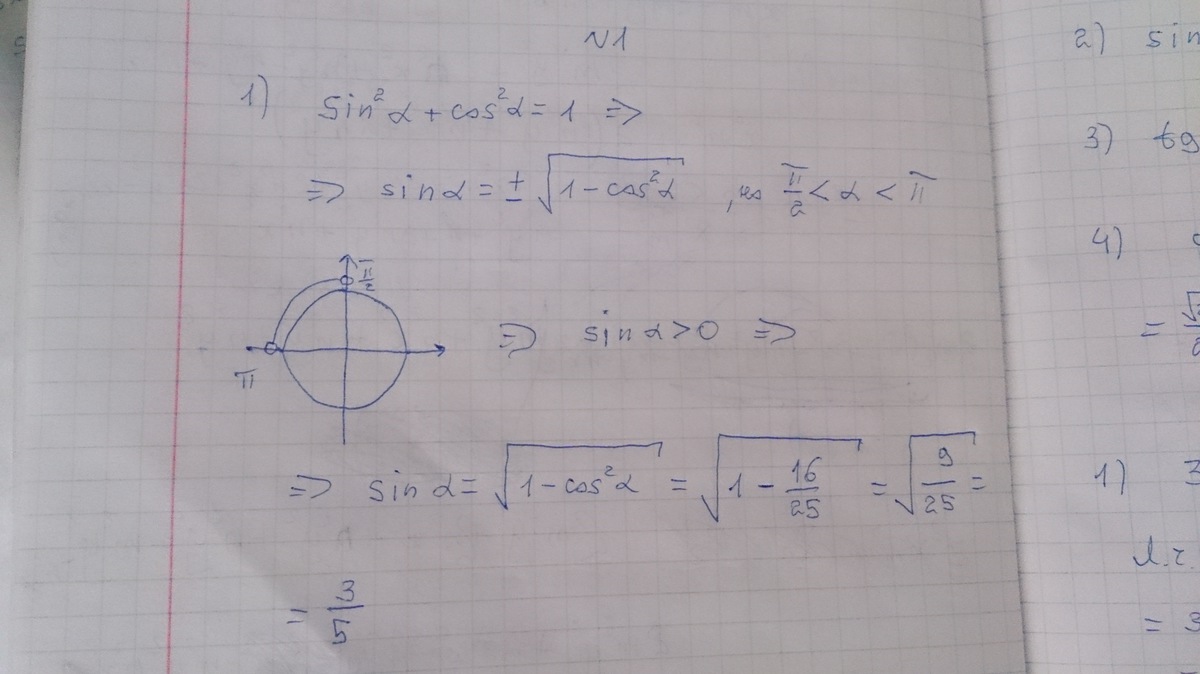 N1
1) sin²α + cos²α = 1 =>
=> sin α = ± √(1 - cos²α) , но π/2 < α < π
π/2
π
=> sin α > 0 =>
=> sin α = √(1 - cos²α) = √(1 - 16/25) = √(9/25) =
= 3/5
2) sin
3) tg
4)
=
1) 3
л.ч.
= 3